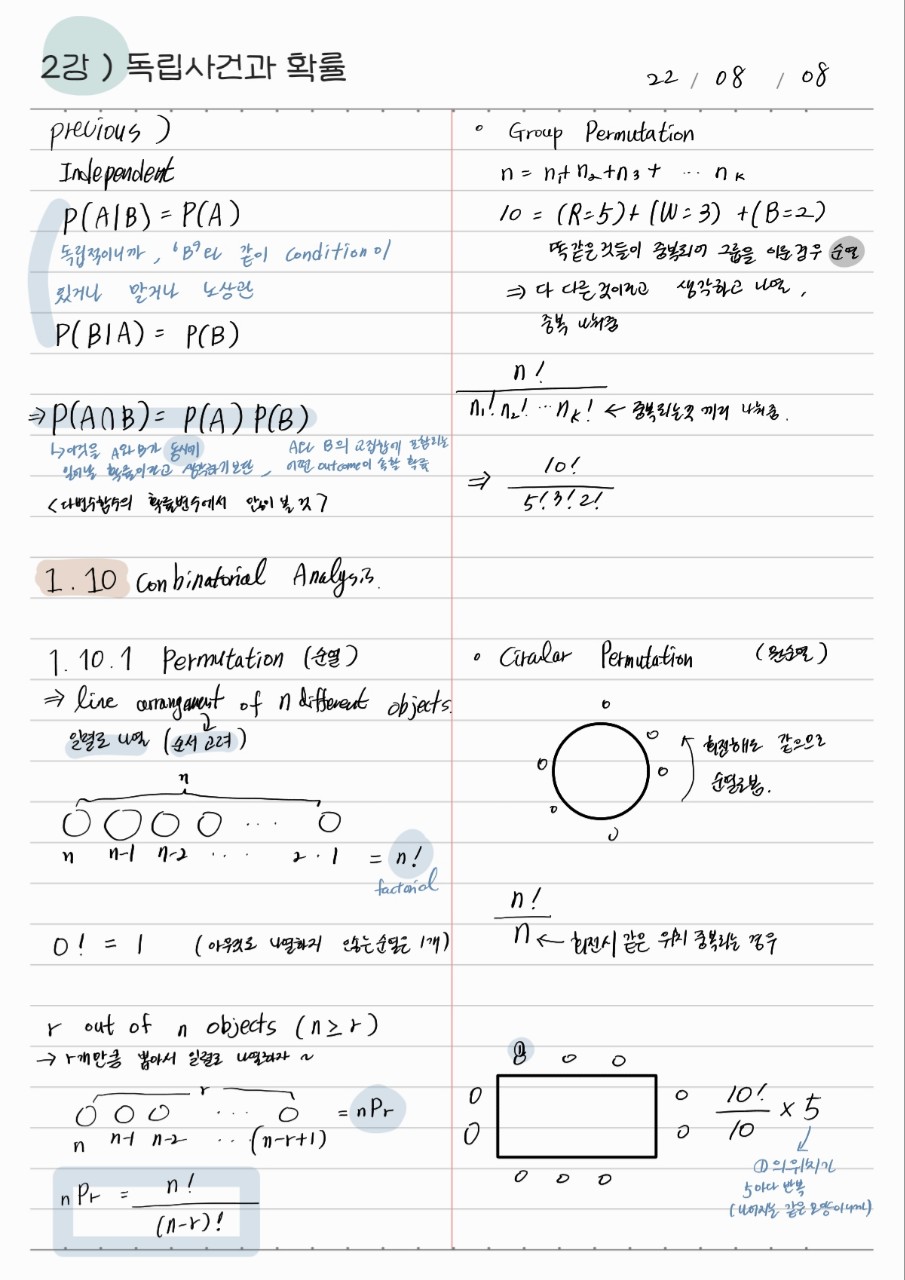 2강 ) 독립사건과 확률
22 / 08 / 08
previous )
Independent
P(A|B) = P(A)
독립적이니까, 'B'라 같이 condition이
있거나 말거나 노상관
P(B|A) = P(B)
⇒ P(A∩B) = P(A) P(B)
↳ 이것을 A와 B가 동시에
일어날 확률이라고 생각하기보단,
A와 B의 교집합에 포함되는
어떤 outcome이 속할 확률
<다변수함수의 확률변수에서 많이 볼 것>
1.10 Combinatorial Analysis.
1.10.1 Permutation (순열)
⇒ line arrangement of n different objects.
일렬로 나열 (순서 고려)
n
n n-1 n-2 ···· 2 · 1 = n!
factorial
0! = 1 (아무것도 나열하지 않는 순열은 1개)
r out of n objects (n≥r)
→ r개만큼 뽑아서 일렬로 나열하자 ~
r
= nPr
n n-1 n-2 ·· (n-r+1)
nPr = n! / (n-r)!
◦ Group Permutation
n = n₁+n₂+n₃+ ··· nₖ
10 = (R=5)+(W=3)+(B=2)
똑같은 것들이 중복되어 그룹을 이룬 경우 순열
⇒ 다 다른 것이라고 생각하고 나열,
중복 나눠줌
n! / n₁! n₂! ··· nₖ! ← 중복되는 것 끼리 나눠줌.
⇒ 10! / 5! 3! 2!
• Circular Permutation (원순열)
회전해도 같으므로
순열로 봄.
n! / n ← 회전시 같은 위치 중복되는 경우
①
10! / 10 × 5
①의 위치가
5마다 반복
(나머지는 같은 모양이니까)